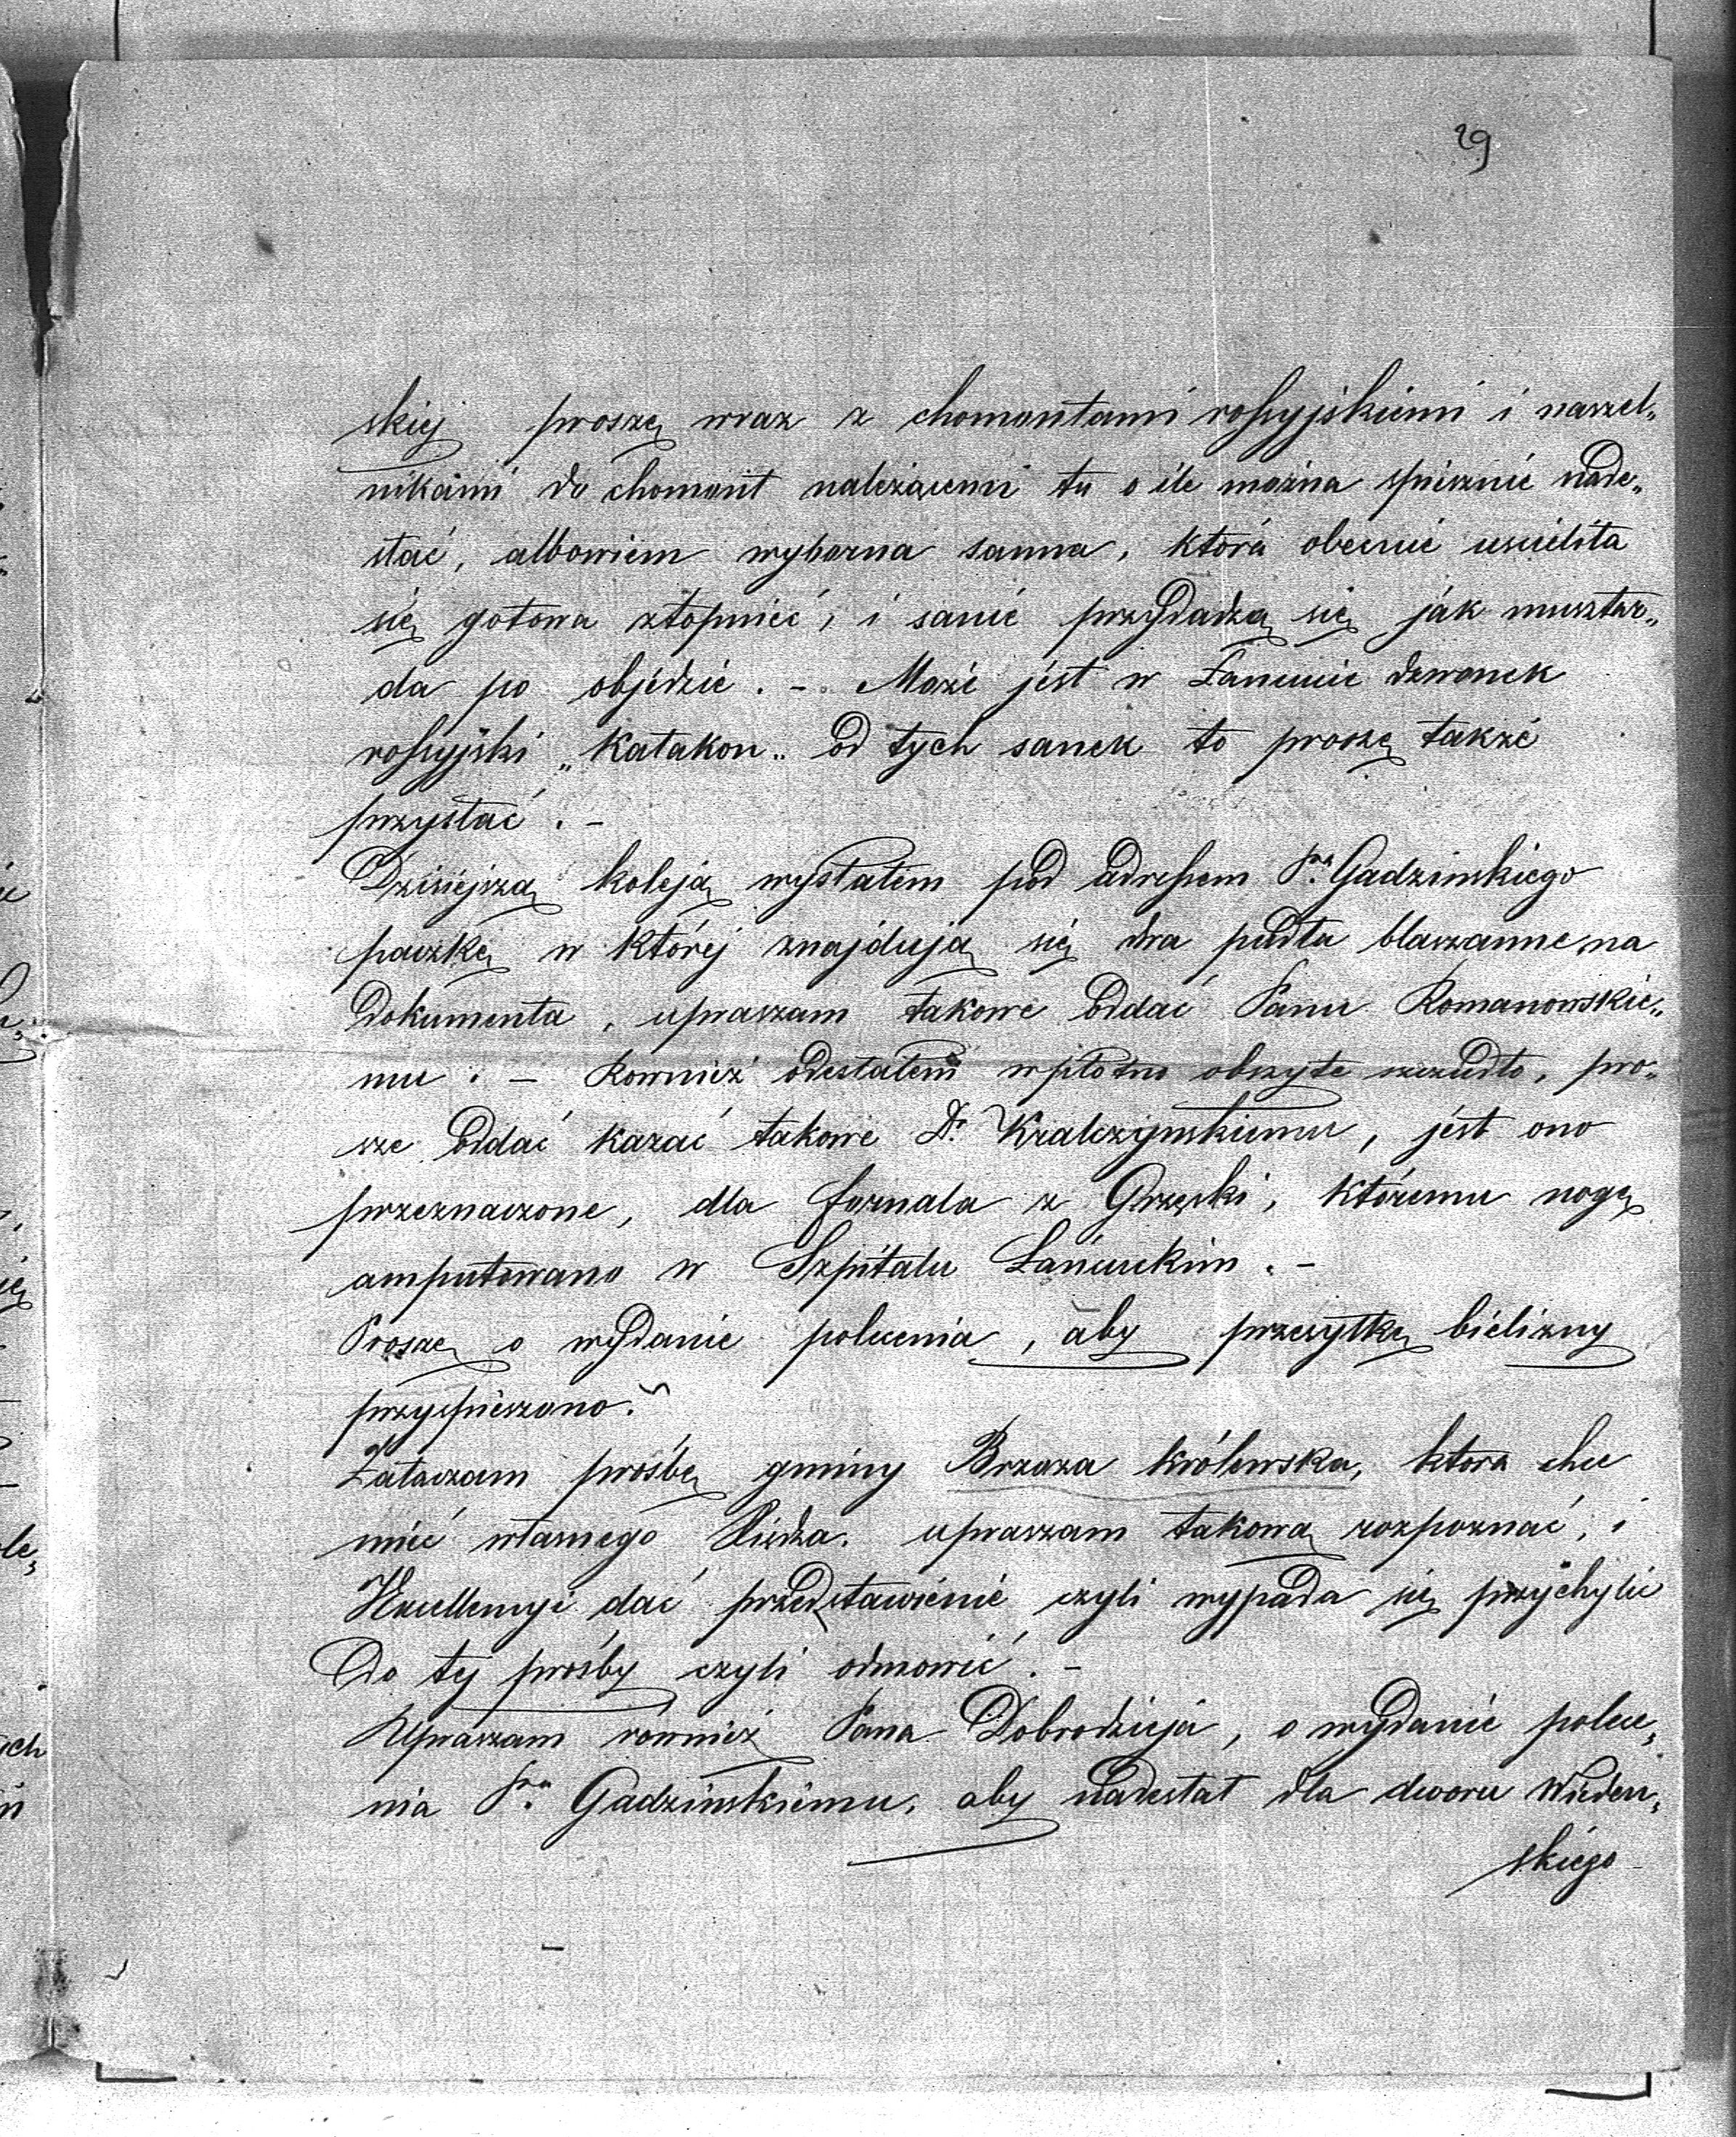 29
skiej proszę wraz z chomontami rossyjskiemi i naszel„
nikami do chomont należącemi tu o ile można spiesznie nade„
słać, albowiem wyborna sanna, która obecnie uscieliła
się gotowa stopnieć, i sanie przydadzą się jak musztar„
da po objedzie. – Może jest w Łancucie dzwonek
rossyjski „Kałakoł„ od tych sanek to proszę także
przysłać. –
Dzisiejszą koleją wysłałem pod adressem Pna Gadzinskiego
paczkę w której znajdują się dwa pudła blaszanne na
Dokumenta, upraszam takowe oddać Panu Romanowskie„
mu. – Rownież odesłałem w płótno obszyte szczudło, pro„
sze oddać kazać takowe Dr Kralczynskiemu, jest ono
przeznaczone, dla fornala z Grzęski, któremu nogę
amputowano w Szpitalu Łańcuckim. –
Proszę o wydanie polecenia, aby przesyłkę bielizny
przyspieszono.
Załaczam prośbę gminy Brzoza królewska, ktora chce
mieć własnego Xiędza. upraszam takową rozpoznać, i
Excellencyi dać przedstawienie czyli wypada się przychylić
Do tej prośby czyli odmowić. –
Upraszam rownież Pana Dobrodzieja, o wydanie polece„
nia Pnu Gadzinskiemu, aby nadesłał dla dworu Wieden„
skiego